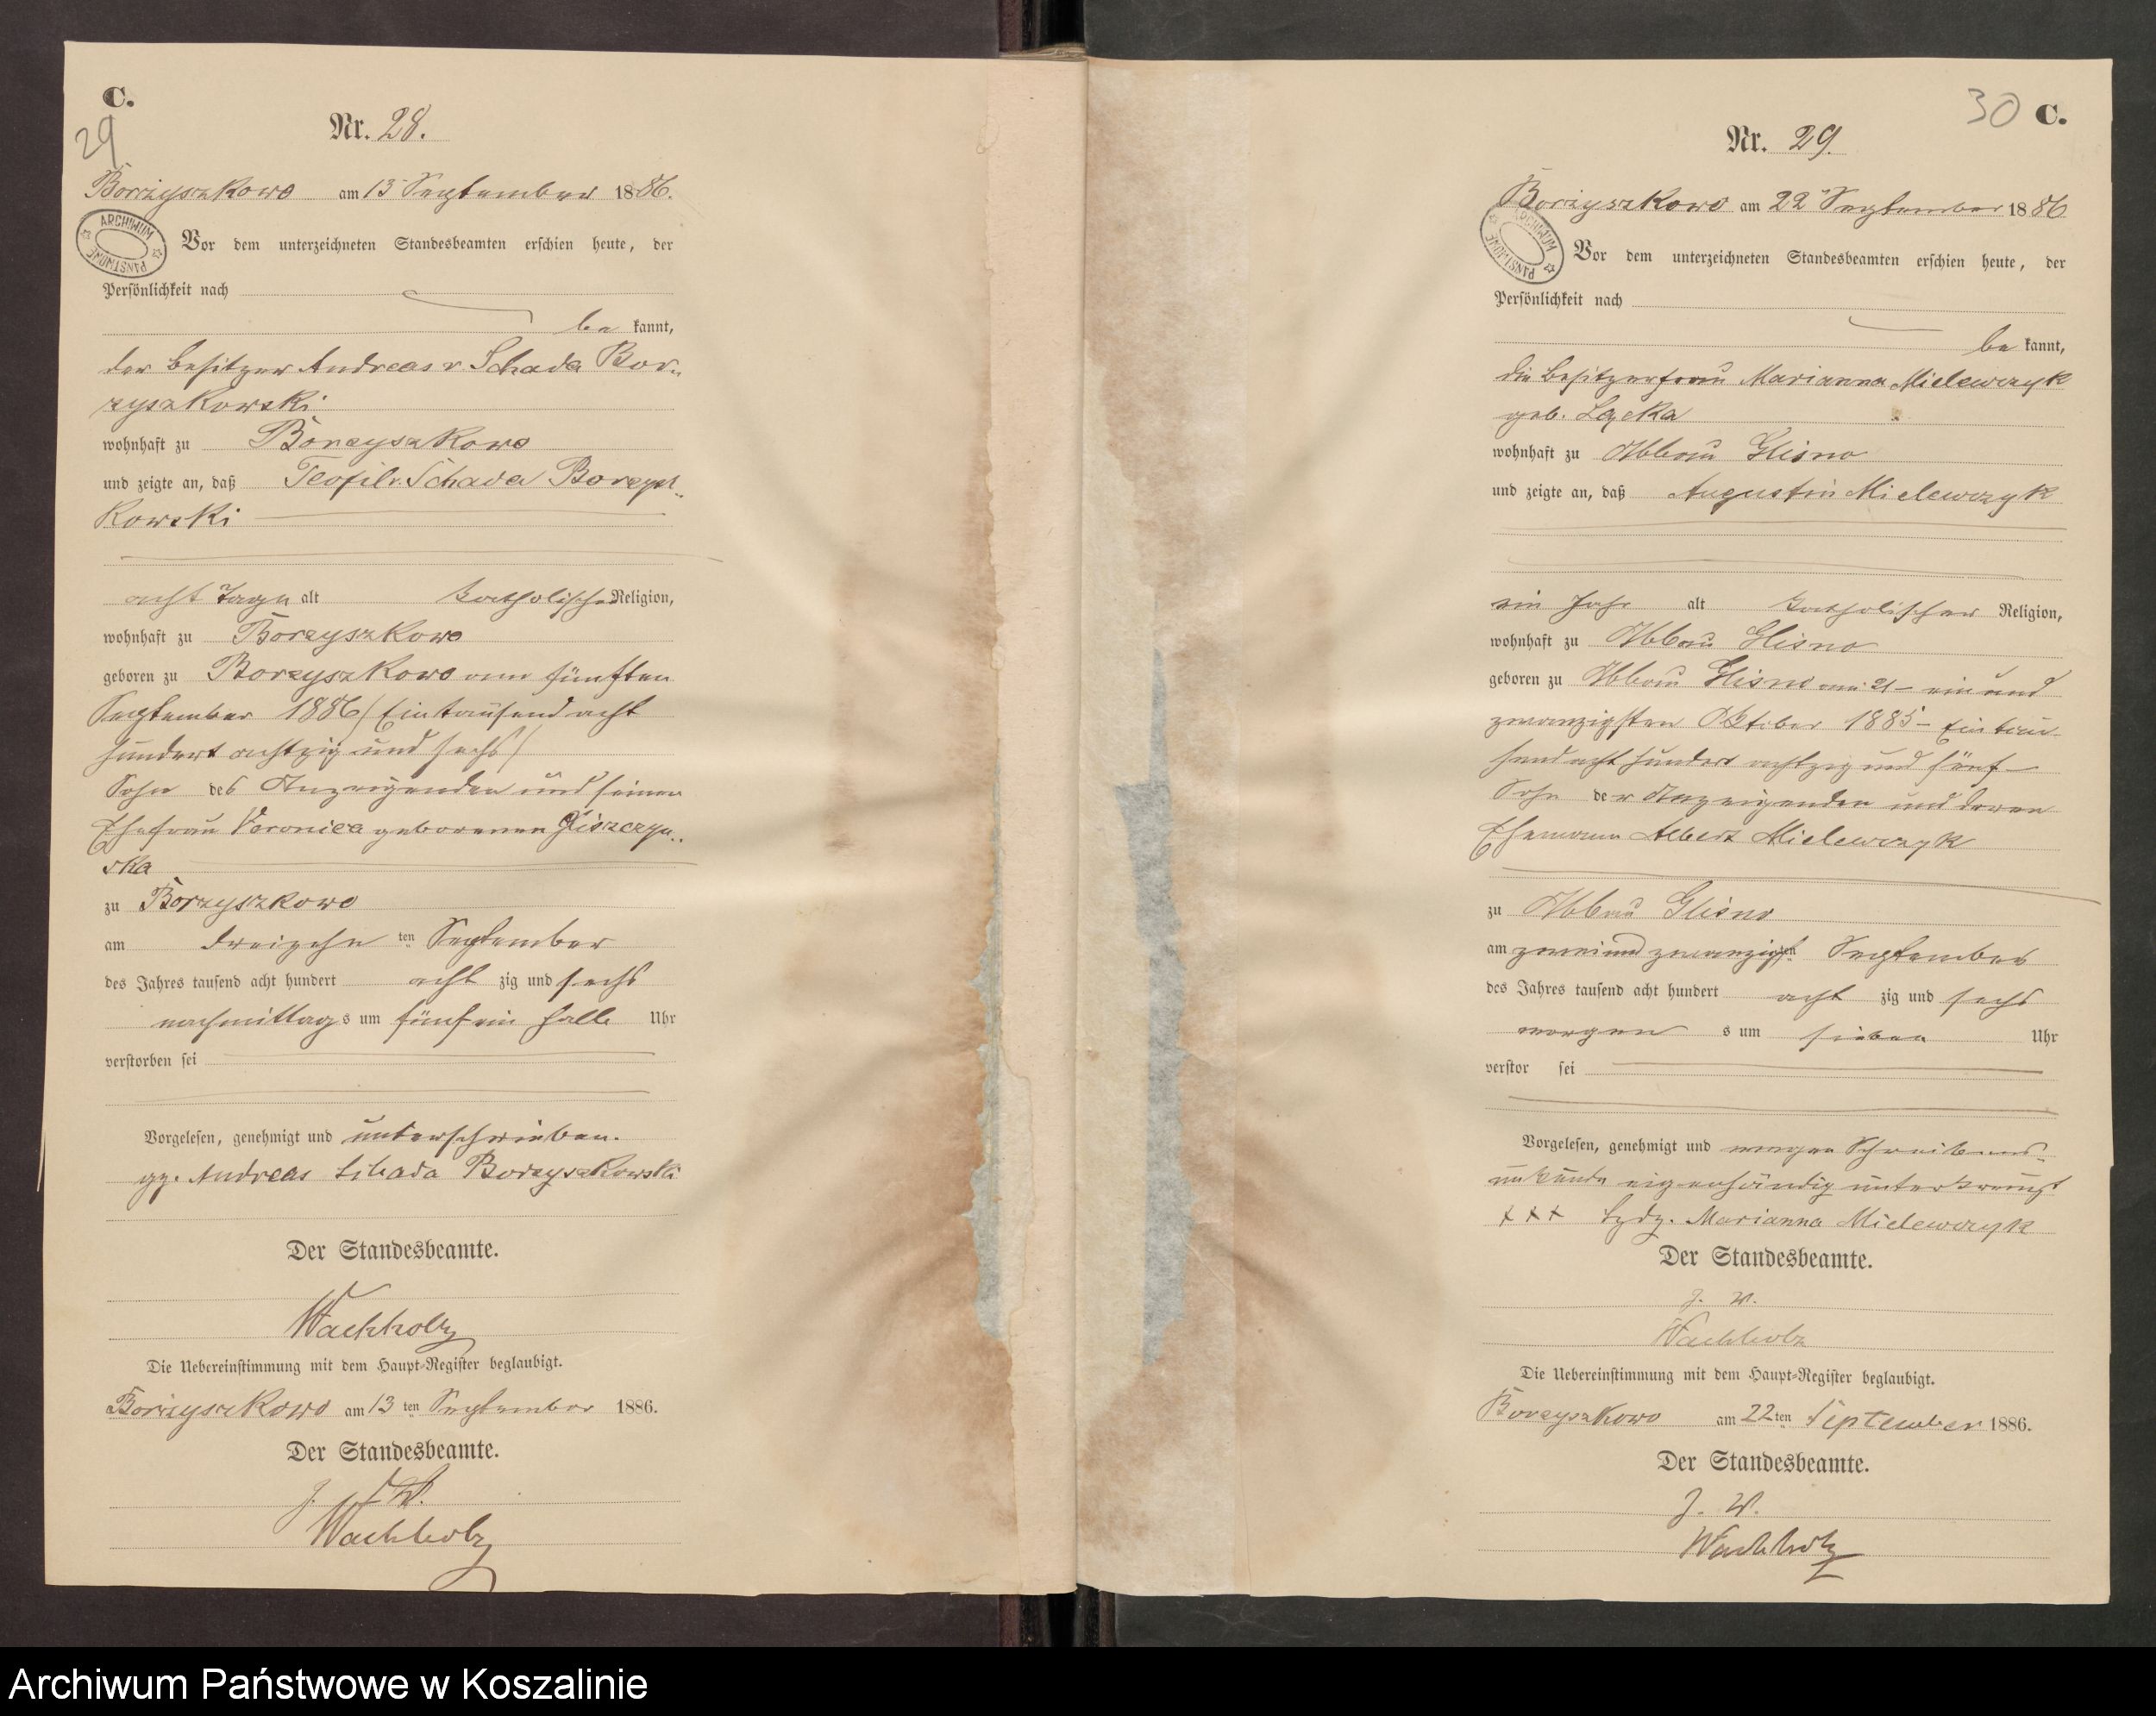 C.
29
Nr. 28.
Borzyszkowo am 13 September 1886.
ARCHIWUM PAŃSTWOWE
Vor dem unterzeichneten Standesbeamten erschien heute, der
Persönlichkeit nach
be kannt,
der Besitzer Andreas v. Schada Bor-
zyszkowski
wohnhaft zu Borzyszkowo
und zeigte an, daß Teofil v. Schada Borzysz-
kowski
acht Tage alt katholische Religion,
wohnhaft zu Borzyszkowo
geboren zu Borzyszkowo am fünften
September 1886 / Eintausend acht
hundert achtzig und sechs /
Sohn des Anzeigenden und seiner
Ehefrau Veronica geborenen
ska
zu Borzyszkowo
am dreizehn ten September
des Jahres tausend acht hundert acht zig und sechs
nachmittags um fünf ein halb Uhr
verstorben sei
Vorgelesen, genehmigt und unterschrieben.
gz. Andreas Schada Borzyszkowski
Der Standesbeamte.
Wachholz
Die Uebereinstimmung mit dem Haupt-Register beglaubigt.
Borzyszkowo am 13 ten September 1886.
Der Standesbeamte.
J. V.
Wachholz
30 C.
Nr. 29.
Borzyszkowo am 22 September 1886
ARCHIWUM PAŃSTWOWE
Vor dem unterzeichneten Standesbeamten erschien heute, der
Persönlichkeit nach
be kannt,
die Besitzerfrau Marianna Mielewczyk
geb. Łącka
wohnhaft zu Abbau Glisno
und zeigte an, daß Augustin Mielewczyk
ein Jahr alt katholischer Religion,
wohnhaft zu Abbau Glisno
geboren zu Abbau Glisno am 21 - ein und
zwanzigsten Oktober 1885 - Ein tau-
send acht hundert achtzig und fünf -
Sohn der Anzeigenden und deren
Ehemann Albert Mielewczyk
zu Abbau Glisno
am zwei und zwanzigsten September
des Jahres tausend acht hundert acht zig und sechs
morgen s um sieben Uhr
verstor sei
Vorgelesen, genehmigt und wegen Schreibens-
unkunde eigenhändig unterkreuzt
+++ Marianna Mielewczyk
Der Standesbeamte.
J. V.
Wachholz
Die Uebereinstimmung mit dem Haupt-Register beglaubigt.
Borzyszkowo am 22 ten September 1886.
Der Standesbeamte.
J. V.
Wachholz
Archiwum Państwowe w Koszalinie